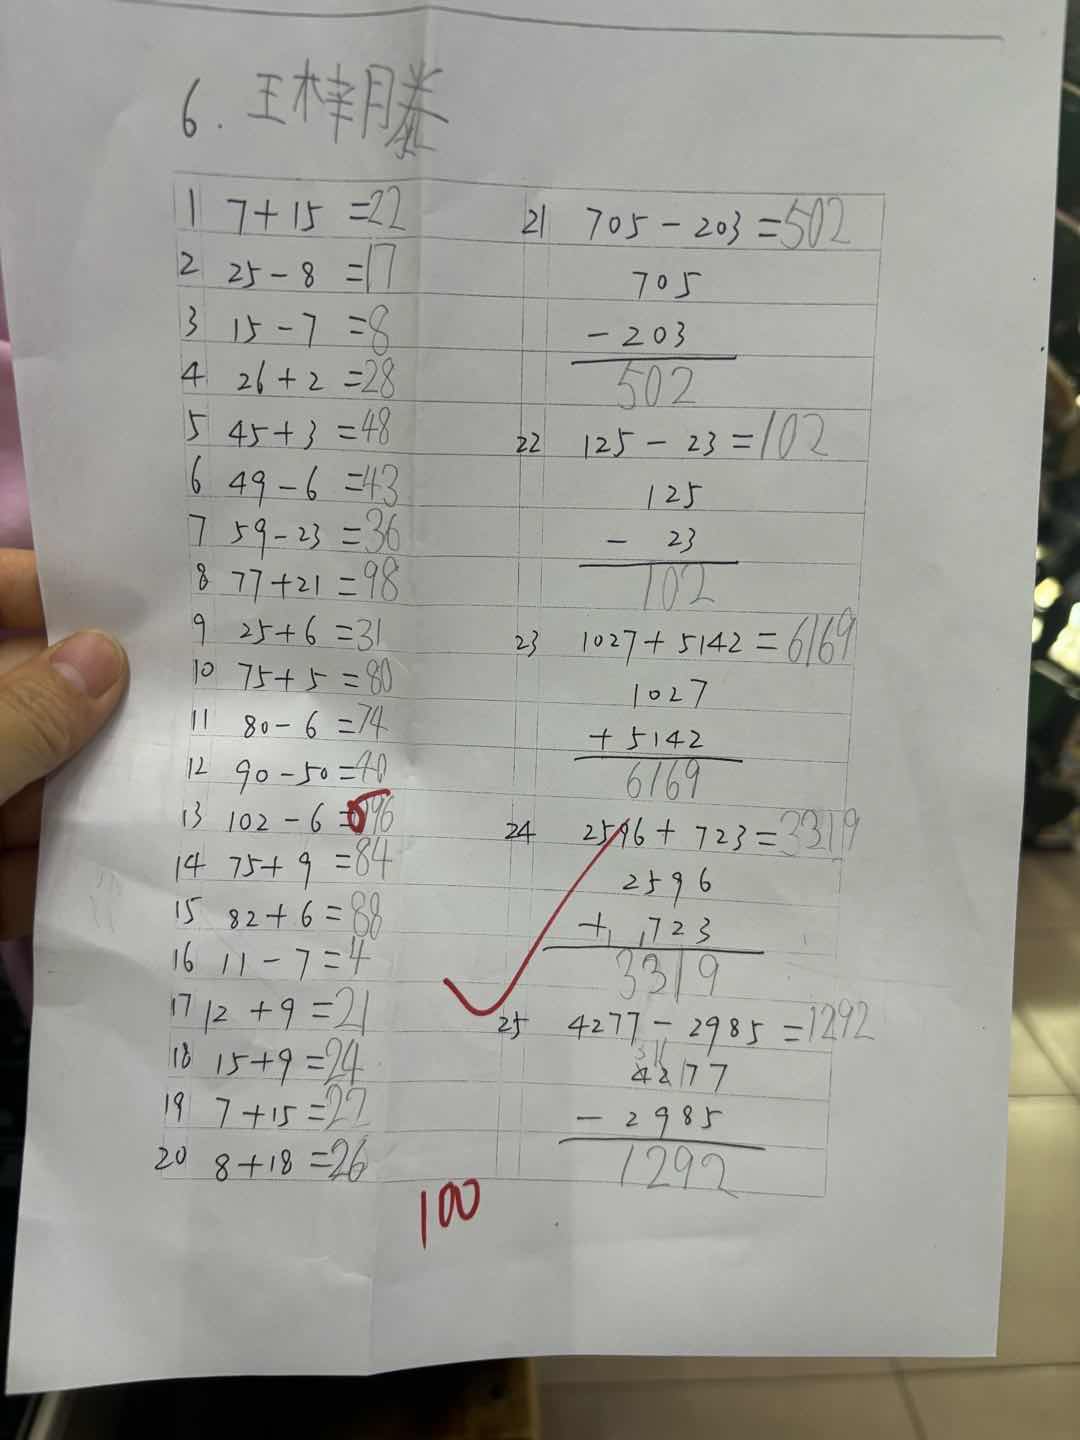 6. 王梓滕
1 7+15 =22
2 25-8 =17
3 15-7 =8
4 26+2 =28
5 45+3 =48
6 49-6 =43
7 59-23 =36
8 77+21 =98
9 25+6 =31
10 75+5 =80
11 80-6 =74
12 90-50=40
13 102-6=96
14 75+9 =84
15 82+6=88
16 11-7=4
17 12+9=21
18 15+9=24
19 7+15=22
20 8+18=26
21 705-203=502
705
-203
502
22 125-23=102
125
- 23
102
23 1027+5142=6169
1027
+5142
6169
24 2596+723=3319
2596
+ 723
3319
25 4277-2985=1292
4277
-2985
1292
100